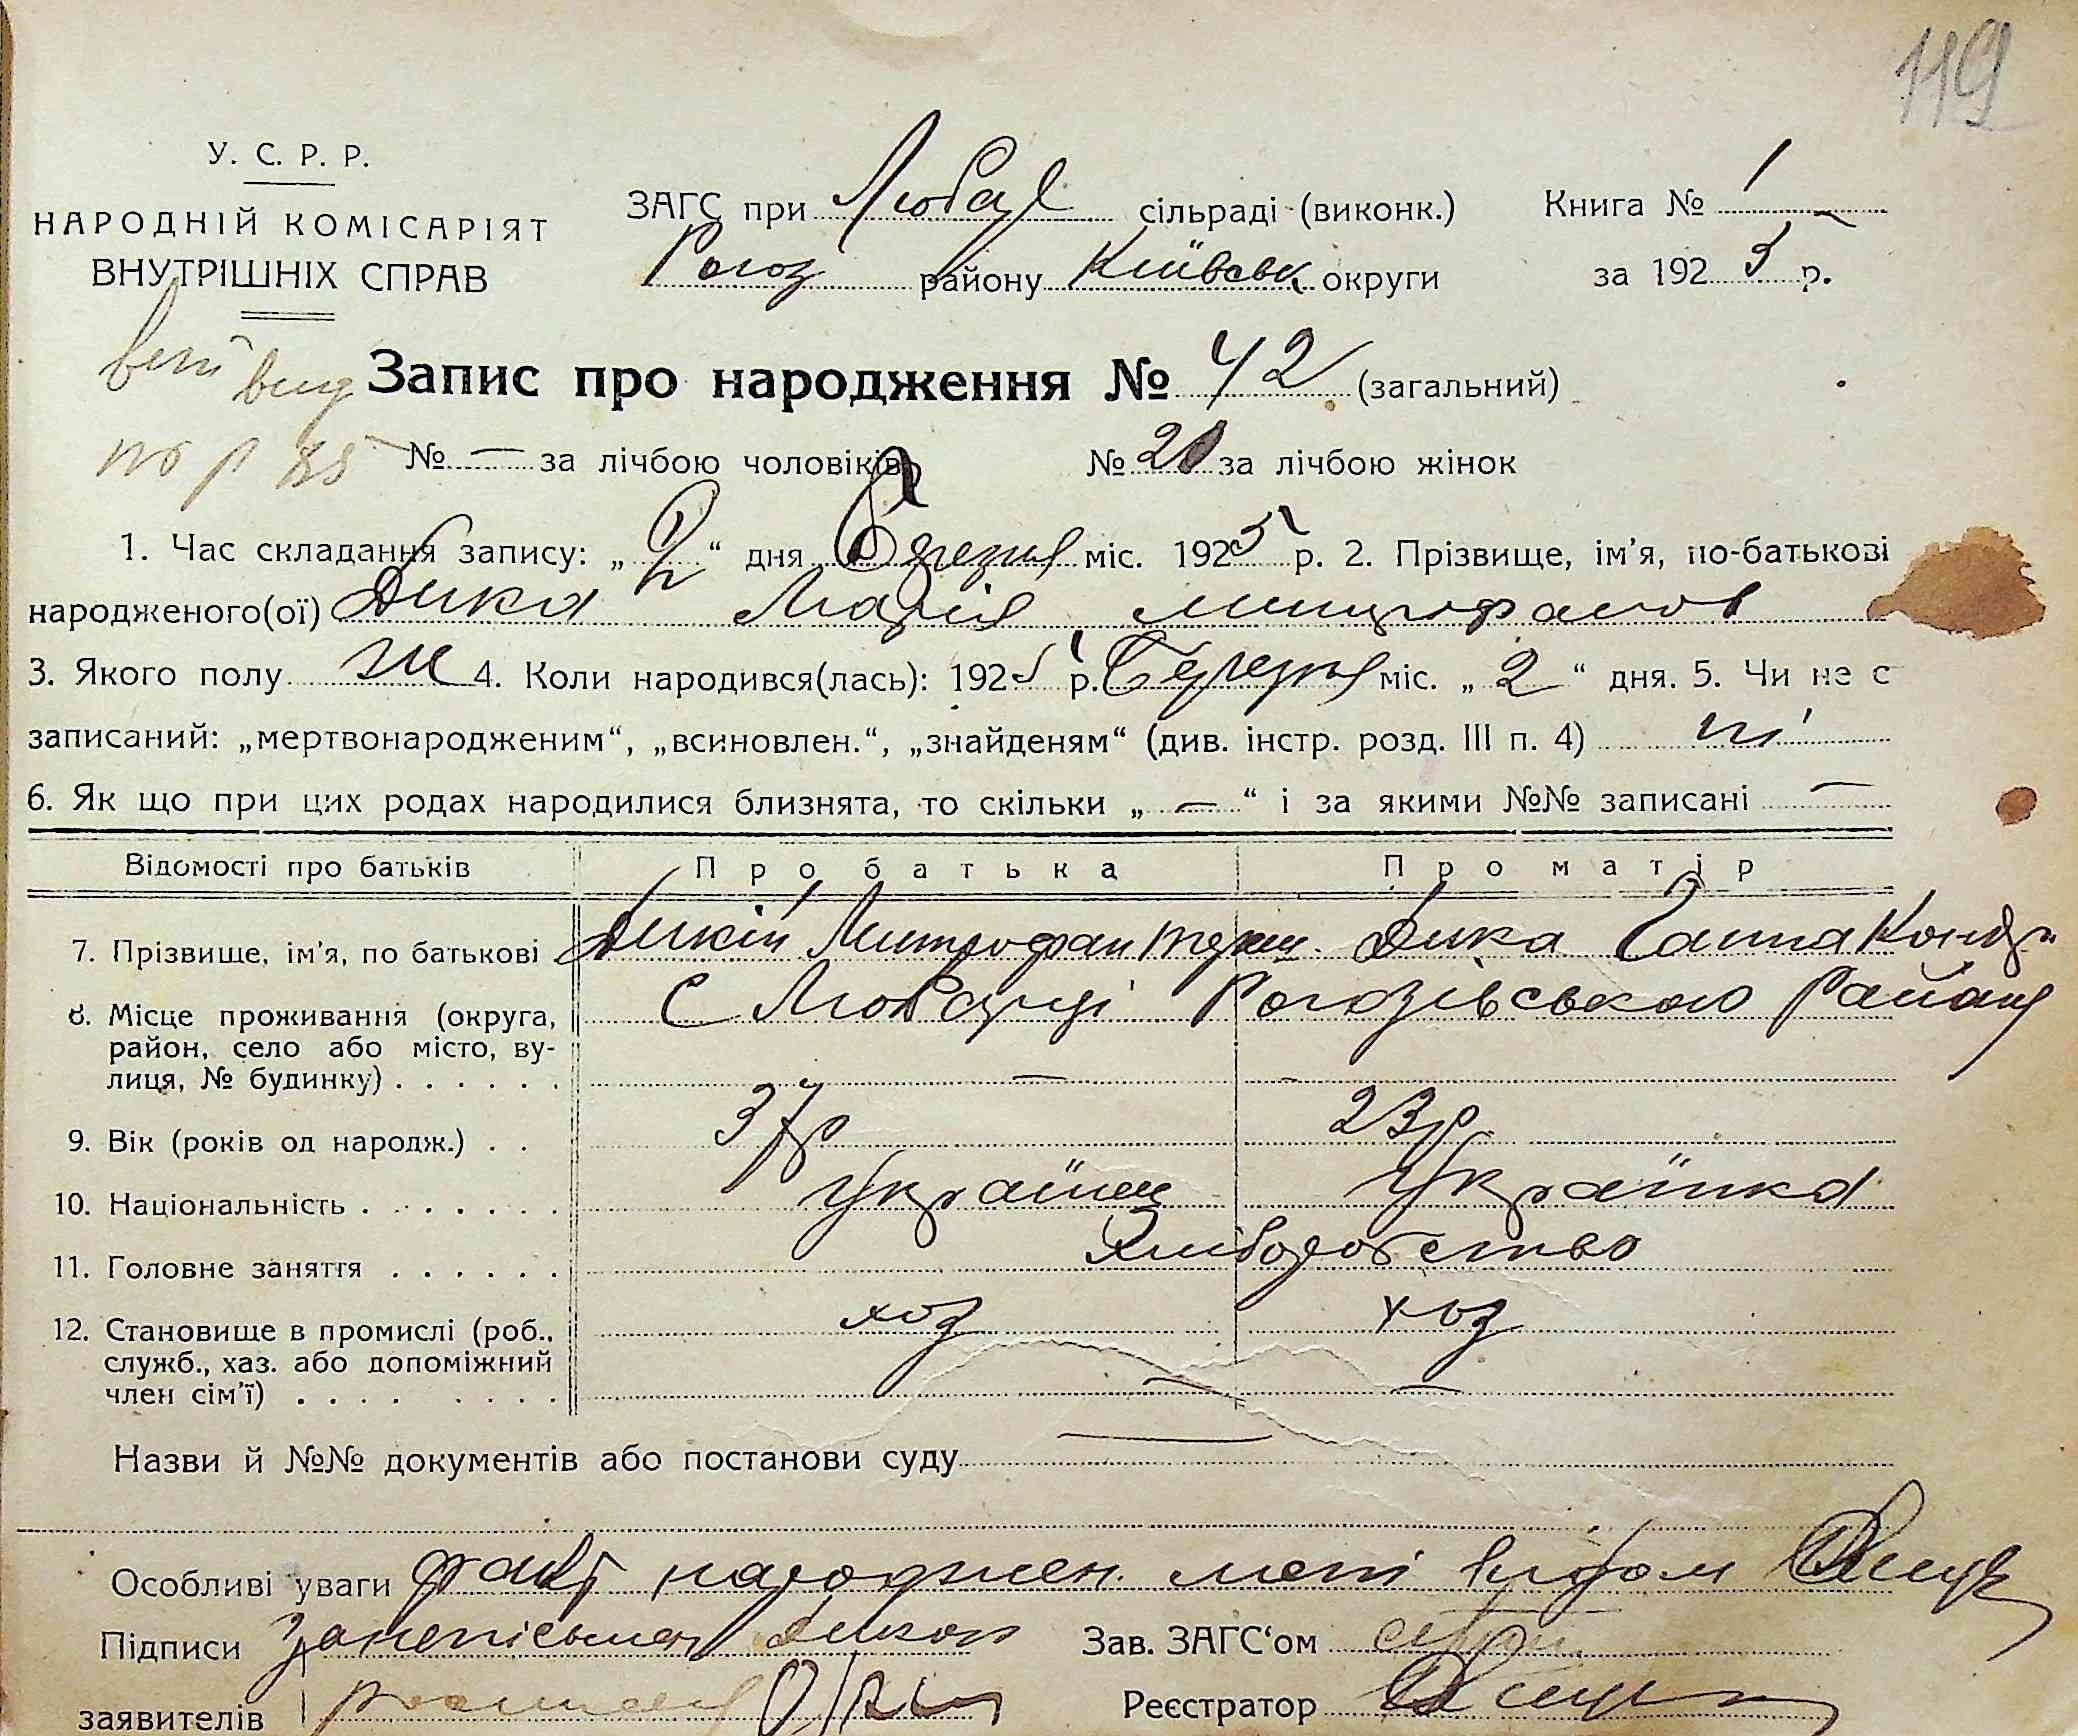 119
У. С. Р. Р.
НАРОДНІЙ КОМІСАРІЯТ
ВНУТРІШНІХ СПРАВ
ЗАГС при Любар сільраді (виконк.) Книга № 1
Рогоз району Київськ округи за 1925 р.
Запис про народження № 42 (загальний)
№ — за лічбою чоловіків № 20 за лічбою жінок
1. Час складання запису: „ “ дня Березня міс. 1925 р. 2. Прізвище, ім’я, по-батькові
народженого(ої) Дика Марія Митрофанов
3. Якого полу ж 4. Коли народився(лась): 1925 р. Березня міс. „ 2 “ дня. 5. Чи не є
записаний: „мертвонародженим“, „всиновлен.“, „знайденям“ (див. інстр. розд. III п. 4) ні
6. Як що при цих родах народилися близнята, то скільки „ — “ і за якими №№ записані —
Відомості про батьків Про батька Про матір
7. Прізвище, ім’я, по батькові Дикій Митрофан Дика Ганна Кондр
8. Місце проживання (округа, С Любарці Рогозівського Району
район, село або місто, ву-
лиця, № будинку) . . . . . . — —
9. Вік (років од народж.) . . 37 р 23 р
10. Національність . . . . . . . Українец Українка
11. Головне заняття . . . . . . Хліборобство
12. Становище в промислі (роб., хоз хоз
служб., хаз. або допоміжний
член сім’ї) . . . . . . . . — —
Назви й №№ документів або постанови суду —
Особливі уваги факт народжен. мені
Підписи Зав. ЗАГС‘ом
заявителів Реєстратор